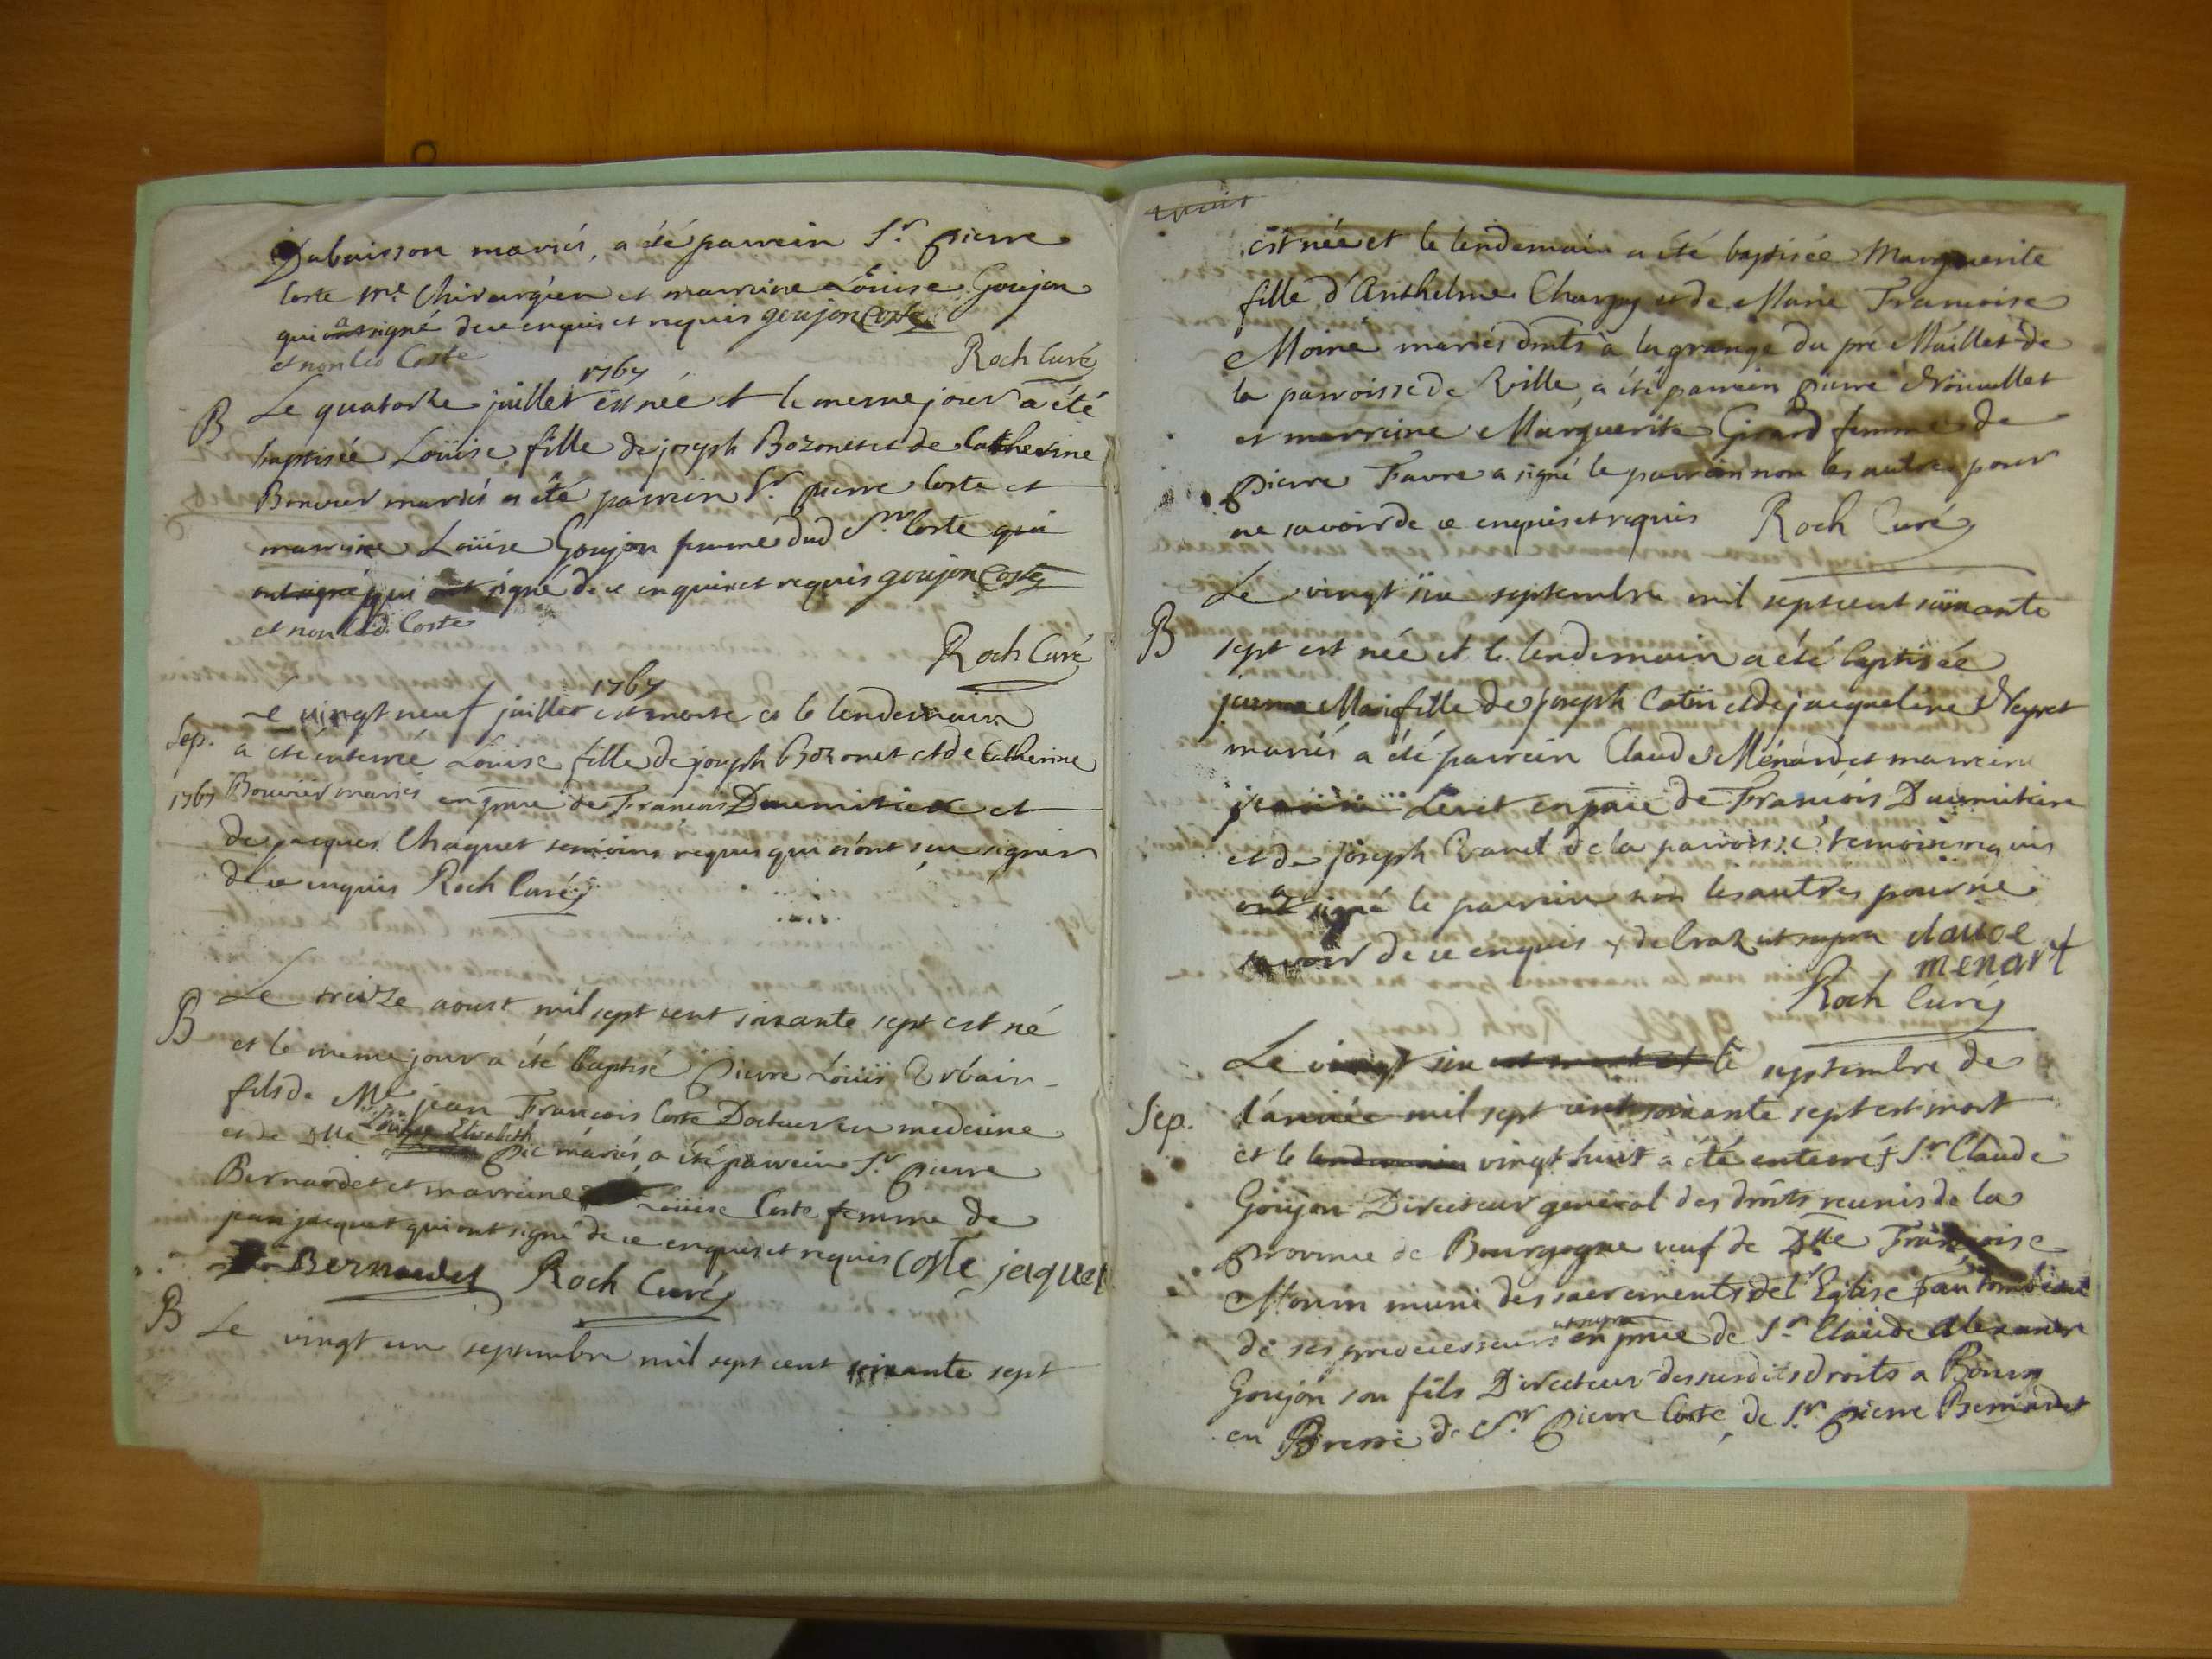 Dubuisson mariés, a été parrein Sr. pierre
Coste me. Chirurgien et marreine Loüise Goujon
qui a signé de ce enquis et requis goujon Coste
et non led Coste
Roch Curé
1767
B Le quatorze juillet est née et le mesme jour a été
baptisée Loüise fille de joseph Bozonet et de Catherine
Bouvier mariés a été parrein Sr. pierre Coste et
marreine Loüise Goujon femme dud Sr. Coste qui
ont signé qui ont signé de ce enquis et requis goujon Coste
et non led. Coste
Roch Curé
1767
Le vingt neuf juillet est morte et le lendemain
Sep. a été enterrée Loüise fille de joseph Bozonet et de Catherine
1767 Bouvier mariés en pnce de François Dumitieu et
de jacques Chaquet temoins requis qui n'ont sçu signer
de ce enquis Roch Curé
B Le treize aoust mil sept cent soixante sept est né
et le meme jour a été baptisé pierre Loüis Urbain
fils de Me jean François Coste Docteur en medecine
et de Dlle Loüise Elisabeth Pic mariés, a été parrein Sr. pierre
Bernardet et marreine Loüise Coste femme de
jean jacquet qui ont signé de ce enquis et requis Coste jaquet
Bernardet Roch Curé
B Le vingt un septembre mil sept cent soixante sept
est née et le lendemain a été baptisée Marguerite
fille d'Anthelme Charpy et de Marie Françoise
Moine mariés dmts à la grange du pré Maillet de
la parroisse de Ville, a été parrein pierre
et marreine Marguerite Girard femme de
pierre Favre a signé le parrein non les autres pour
ne savoir de ce enquis et requis Roch Curé
Le vingt six septembre mil sept cent soixante
B sept est née et le lendemain a été baptisée
jeanne Marie fille de joseph Catin et de jacqueline Neyret
mariés a été parrein Claude Ménard et marreine
Levet en pnce de François Dumitieu
et de joseph Vanel de la parroisse temoins requis
a signé le parrein non les autres pour ne
savoir de ce enquis ut supra claude
menart
Roch Curé
Le vingt six est mort et le septembre de
Sep. l'année mil sept cent soixante sept est mort
et le lendemain vingt huit a été enterré Sr. Claude
Goujon Directeur general des droits reunis de la
province de Bourgogne veuf de Dlle Françoise
Morin muni des sacrements de l'Eglise au tombeau
de ses predecesseurs ut supra en pnce de Sr. Claude Alexander
Goujon son fils Directeur des susdits droits a Bourg
en Bresse de Sr. pierre Coste, de Sr. pierre Bernardet